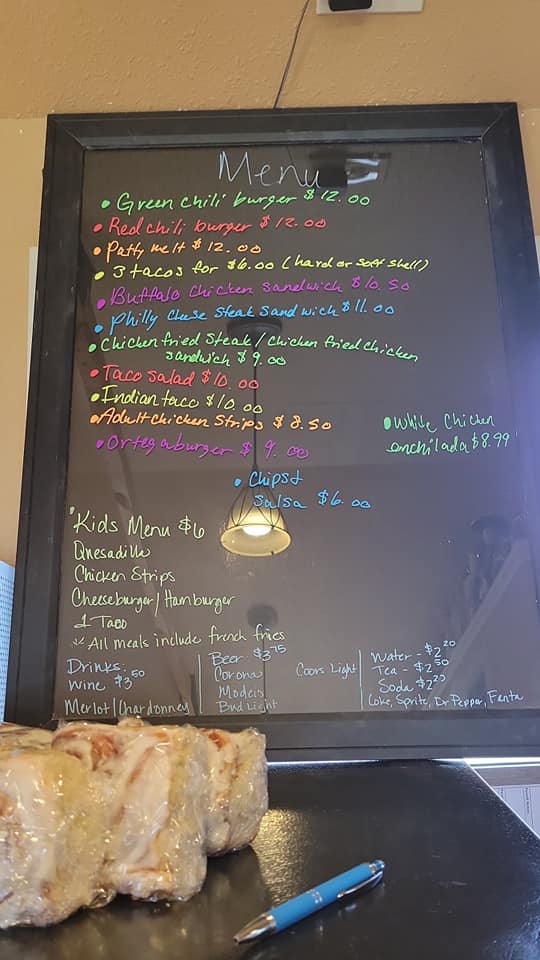 Menu
• Green chili burger $12.00
• Red chili burger $12.00
• Patty melt $12.00
• 3 tacos for $6.00 (hard or soft shell)
• Buffalo Chicken sandwhich $10.50
• Philly cheese steak sandwich $11.00
• Chicken fried steak / Chicken fried chicken
sandwich $9.00
• Taco salad $10.00
• Indian taco $10.00
• Adult chicken strips $8.50
• Ortega burger $9.00
• White Chicken
enchilada $8.99
• Chips &
Salsa $6.00
• Kids Menu $6
Quesadilla
Chicken Strips
Cheeseburger/Hamburger
1 Taco
* All meals include french fries
Drinks:
Wine $3.50
Merlot/Chardonney
Beer - $3.75
Corona
Modelo
Bud Light
Coors Light
Water - $2.20
Tea - $2.50
Soda $2.25
Coke, Sprite, Dr Pepper, Fanta